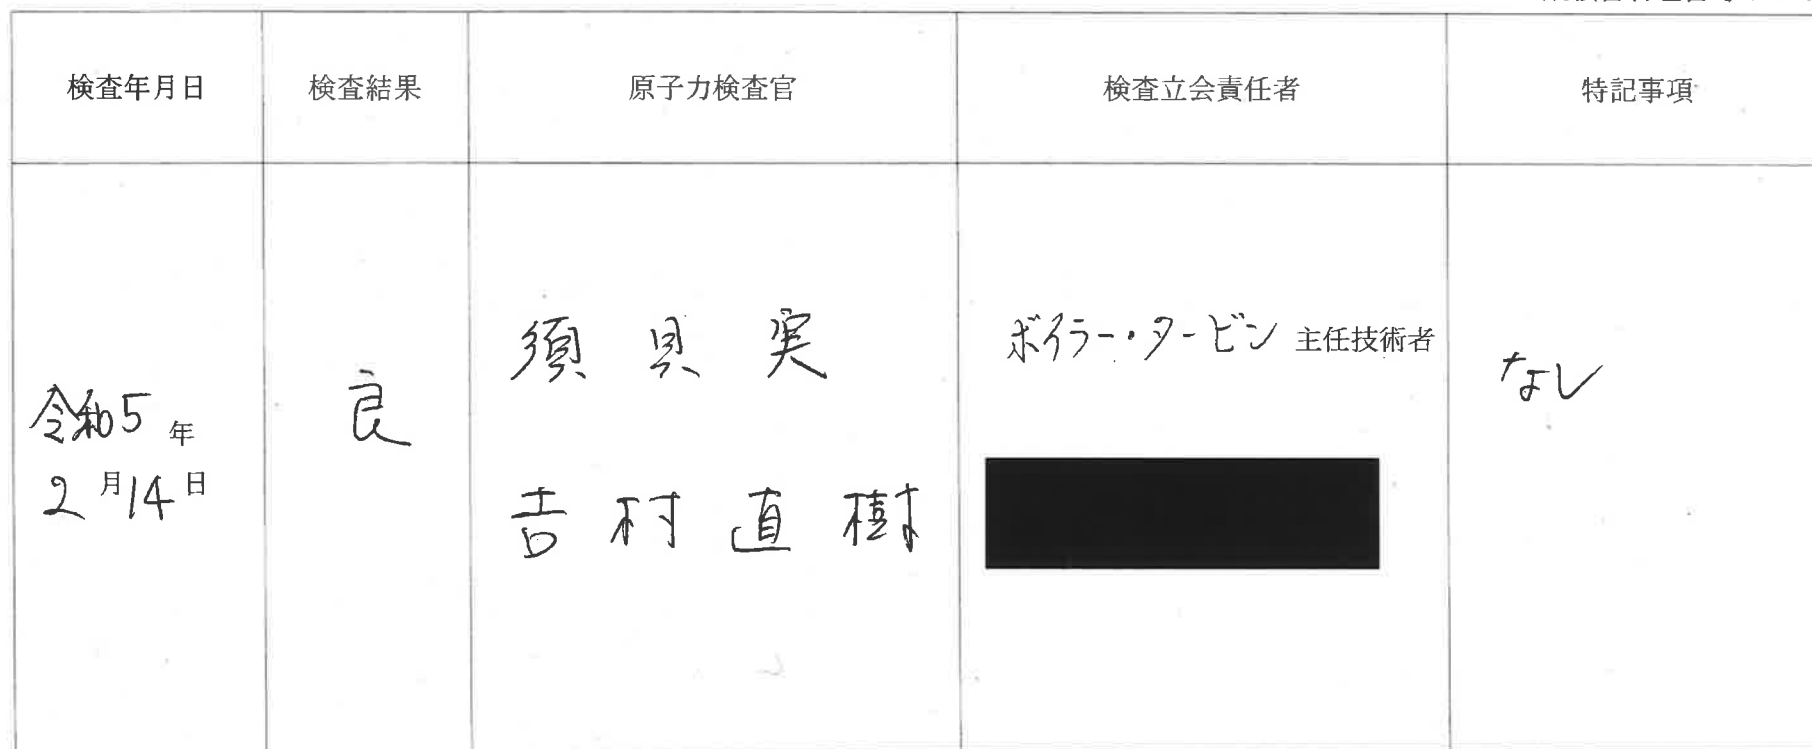 検査年月日
検査結果
原子力検査官
検査立会責任者
特記事項
令和5年
2月14日
良
須貝実
吉村直樹
ボイラー・タービン 主任技術者
なし